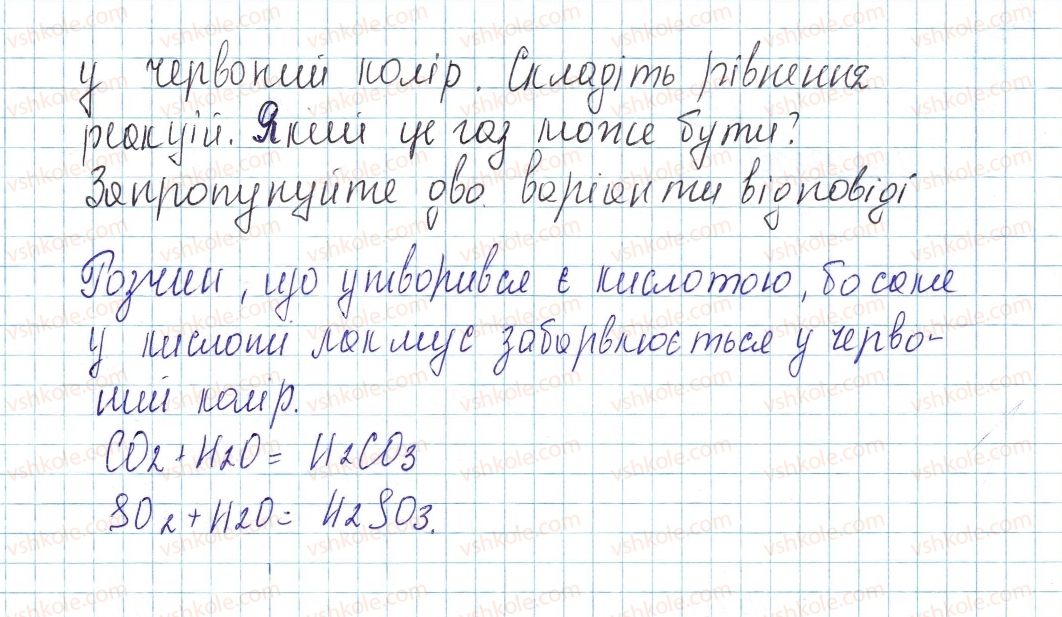 у червоний колір. Складіть рівнення
реакцій. Який це газ може бути?
Запропунуйте два варіанти відповіді
Розчин, що утворився є кислотою, бо саме
у кислоті лакмус забарвлюється у черво-
ний колір.
CO2 + H2O = H2CO3
SO2 + H2O = H2SO3.